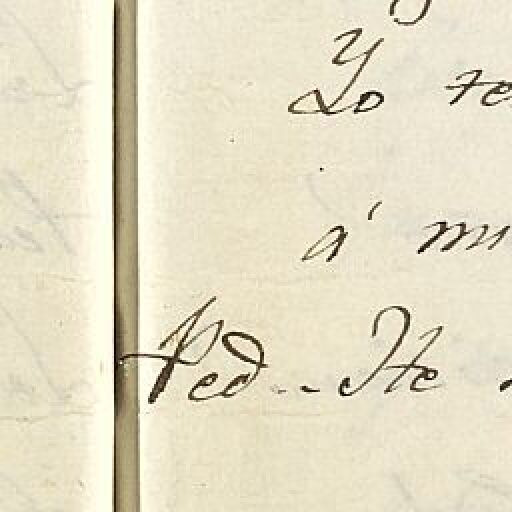 Yo te
á mi
Ped.. Ite